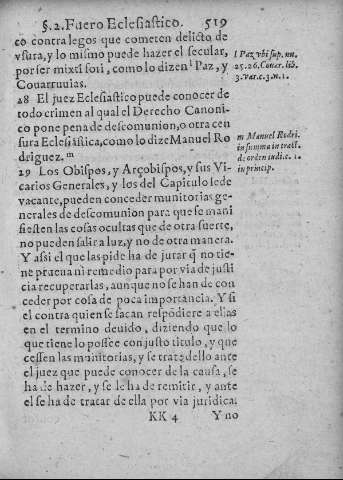 §. 2. Fuero Eclesiastico. 519
co contra legos que cometen delicto de
vsura, y lo mismo puede hazer el secular,
por ser mixti fori, como lo dizen l Paz, y
Couarruuias.
l Paz vbi sup. nu.
25. 26. Couar. lib.
3. var. c. 3. n. 1.
28 El juez Eclesiastico puede conocer de
todo crimen al qual el Derecho Canoni-
co pone pena de descomunion, o otra cen
sura Eclesiastica, como lo dize Manuel Ro
driguez. m
m Manuel Rodri.
in summa in tract.
d. orden iudi. c. 1.
in princip.
29 Los Obispos, y Arçobispos, y sus Vi-
carios Generales, y los del Capitulo sede
vacante, pueden conceder munitorias ge-
nerales de descomunion para que se mani
fiesten las cosas ocultas que de otra suerte,
no pueden salir a luz, y no de otra manera.
Y assi el que las pide ha de jurar q̃ no tie-
ne prueua ni remedio para por via de justi
cia recuperarlas, aunque no se han de con
ceder por cosa de poca importancia. Y si
el contra quien se sacan respõdiere a ellas
en el termino deuido, diziendo que lo
que tiene lo possee con justo titulo, y que
cessen las manitorias, y se trate dello ante
el juez que puede conocer de la causa, se
ha de hazer, y se le ha de remitir, y ante
el se ha de tratar de ella por via juridica.
KK 4 Y no